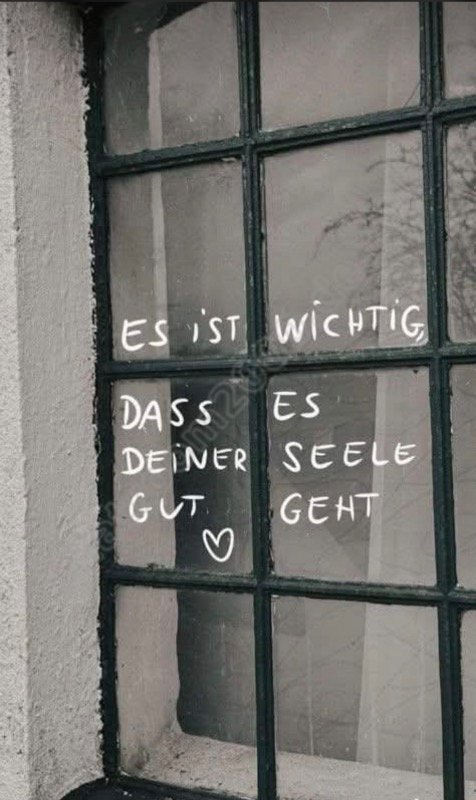 ES iST WiCHTiG,
DASS ES
DEiNER SEELE
GUT GEHT